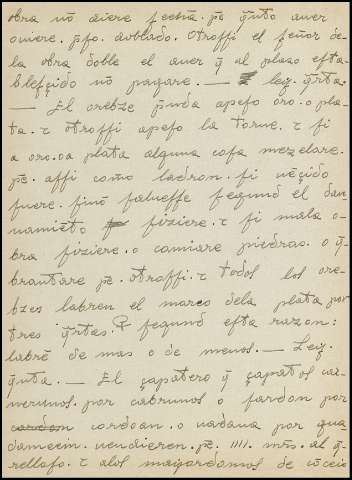 obra nõ diere fecha. pẽ q̃nto auer
ouiere. pfo. doblado. Otroffi el feñor de-
la obra doble el auer q̃ al plazo efta-
blefçido no pagare. — leẏ. q̃rta.
— El orebze pmda apefo oro. o pla-
ta. τ otroffi apefo la torne. τ fi
a oro. oa plata alguna cofa mezclare.
pẽ. affi como ladron. fi uẽçido
fuere. fino falueffe fegund el dan-
namiẽto fiziere. τ fi mala o-
bra fiziere. o camiare piedras. o q̃-
brantare pẽ. otroffi. τ todos los ore-
bzes labren el marco dela plata por
tres q̃rtas. fegund efta razon:
labrẽ de mas o de menos. — Leẏ.
q̃nta. — El çapatero q̃ çapatos car-
nerunos. por cabrunos o fardon por
cordoan. o uadana por gua
damecin. uendieren. pẽ. IIII. mrs. al q̃-
rellofo. τ alos maẏordomos de cõceio